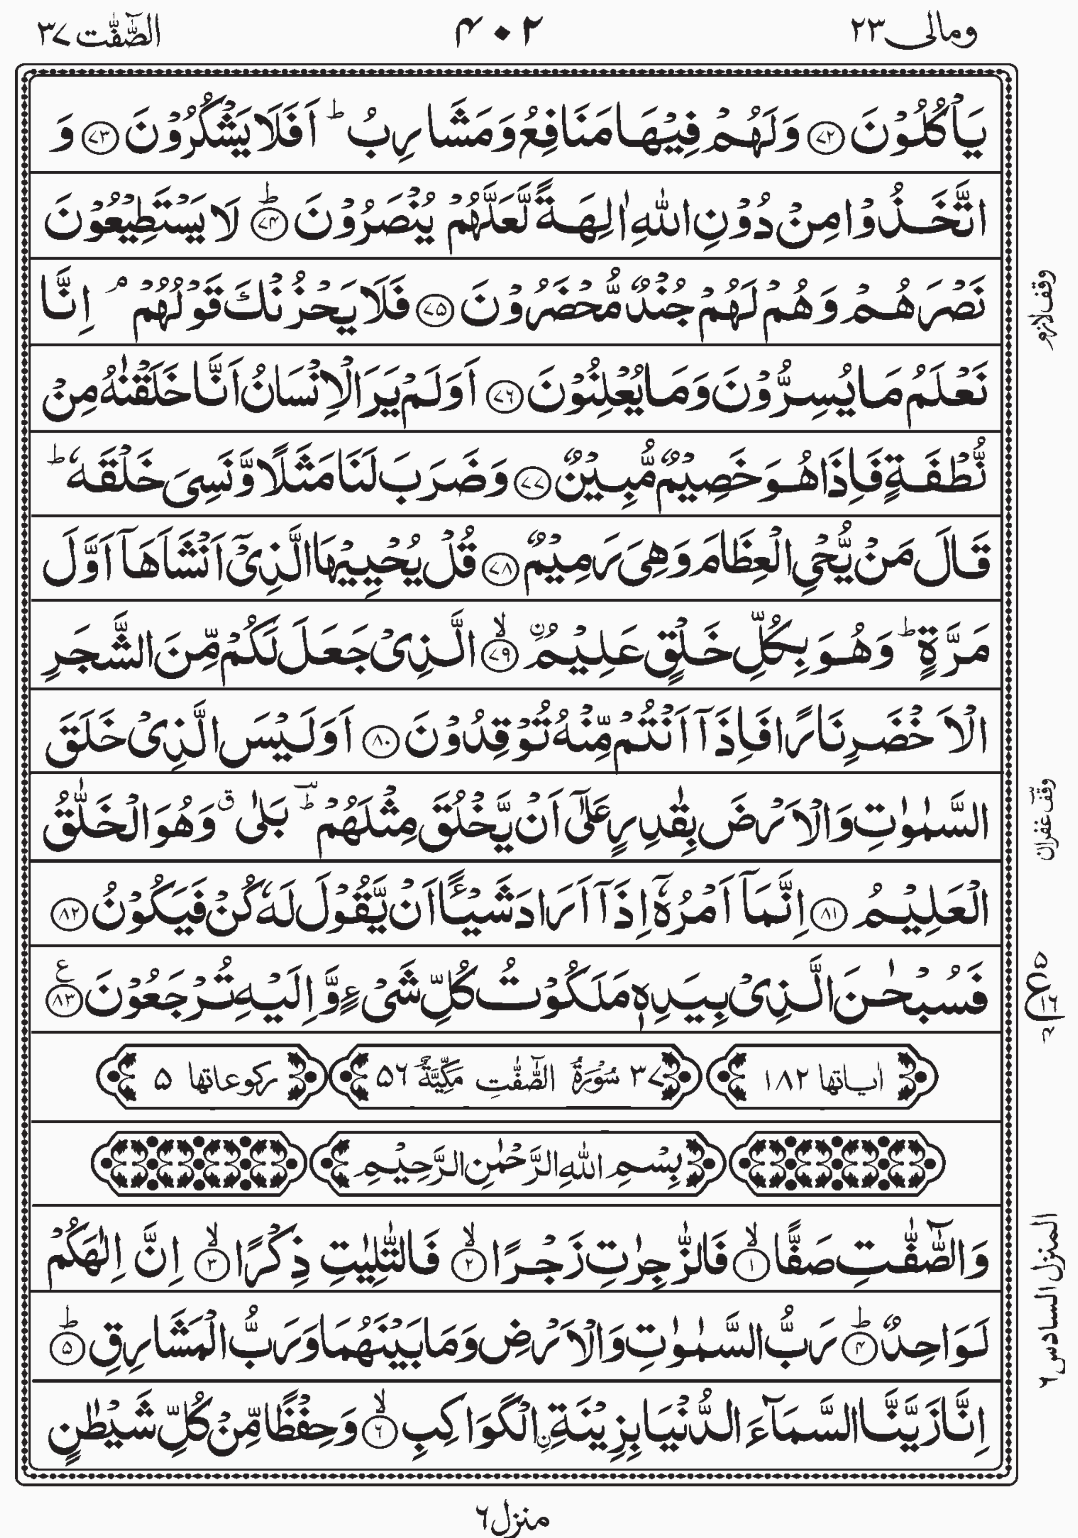 ومالی ٢٣
٤٠٢
الصّٰٓفّٰت ٣٧
يَاۡكُلُوۡنَ ‏﴿٧٢﴾‏ وَلَهُمۡ فِيۡهَا مَنَافِعُ وَمَشَارِبُ ؕ اَفَلَا يَشۡكُرُوۡنَ ‏﴿٧٣﴾‏ وَ
اتَّخَذُوۡا مِنۡ دُوۡنِ اللّٰهِ اٰلِهَةً لَّعَلَّهُمۡ يُنۡصَرُوۡنَ ؕ‏﴿٧٤﴾‏ لَا يَسۡتَطِيۡعُوۡنَ
نَصۡرَهُمۡ وَهُمۡ لَهُمۡ جُنۡدٌ مُّحۡضَرُوۡنَ ‏﴿٧٥﴾‏ فَلَا يَحۡزُنۡكَ قَوۡلُهُمۡ ۘ اِنَّا
نَعۡلَمُ مَا يُسِرُّوۡنَ وَمَا يُعۡلِنُوۡنَ ‏﴿٧٦﴾‏ اَوَلَمۡ يَرَ الۡاِنۡسَانُ اَنَّا خَلَقۡنٰهُ مِنۡ
نُّطۡفَةٍ فَاِذَا هُوَ خَصِيۡمٌ مُّبِيۡنٌ ‏﴿٧٧﴾‏ وَضَرَبَ لَنَا مَثَلًا وَّنَسِىَ خَلۡقَهٗ ؕ
قَالَ مَنۡ يُّحۡىِ الۡعِظَامَ وَهِىَ رَمِيۡمٌ ‏﴿٧٨﴾‏ قُلۡ يُحۡيِيۡهَا الَّذِىۡۤ اَنۡشَاَهَاۤ اَوَّلَ
مَرَّةٍ ؕ وَهُوَ بِكُلِّ خَلۡقٍ عَلِيۡمُ ۙ‏﴿٧٩﴾‏ اۨلَّذِىۡ جَعَلَ لَكُمۡ مِّنَ الشَّجَرِ
الۡاَخۡضَرِ نَارًا فَاِذَاۤ اَنۡتُمۡ مِّنۡهُ تُوۡقِدُوۡنَ ‏﴿٨٠﴾‏ اَوَلَيۡسَ الَّذِىۡ خَلَقَ
السَّمٰوٰتِ وَالۡاَرۡضَ بِقٰدِرٍ عَلٰٓى اَنۡ يَّخۡلُقَ مِثۡلَهُمۡ ؕ بَلٰى ۚ وَهُوَ الۡخَلّٰقُ
الۡعَلِيۡمُ ‏﴿٨١﴾‏ اِنَّمَاۤ اَمۡرُهٗۤ اِذَاۤ اَرَادَ شَيۡـًٔا اَنۡ يَّقُوۡلَ لَهٗ كُنۡ فَيَكُوۡنُ ‏﴿٨٢﴾‏
فَسُبۡحٰنَ الَّذِىۡ بِيَدِهٖ مَلَكُوۡتُ كُلِّ شَىۡءٍ وَّاِلَيۡهِ تُرۡجَعُوۡنَ ‏﴿٨٣﴾‏
اٰیاتها ١٨٢
٣٧ سُوۡرَةُ الصّٰٓفّٰتِ مَكِّيَّةٌ ٥٦
رکوعاتها ٥
بِسۡمِ اللّٰهِ الرَّحۡمٰنِ الرَّحِيۡمِ
وَالصّٰٓفّٰتِ صَفًّا ۙ‏﴿١﴾‏ فَالزّٰجِرٰتِ زَجۡرًا ۙ‏﴿٢﴾‏ فَالتّٰلِيٰتِ ذِكۡرًا ۙ‏﴿٣﴾‏ اِنَّ اِلٰهَكُمۡ
لَوَاحِدٌ ؕ‏﴿٤﴾‏ رَبُّ السَّمٰوٰتِ وَالۡاَرۡضِ وَمَا بَيۡنَهُمَا وَرَبُّ الۡمَشَارِقِ ؕ‏﴿٥﴾‏
اِنَّا زَيَّنَّا السَّمَآءَ الدُّنۡيَا بِزِيۡنَةِ ۨالۡكَوَاكِبِ ۙ‏﴿٦﴾‏ وَحِفۡظًا مِّنۡ كُلِّ شَيۡطٰنٍ
وقف لازم
وقف غفران
٥
ع
١٦
٤
المنزل السادس ٦
منزل ٦